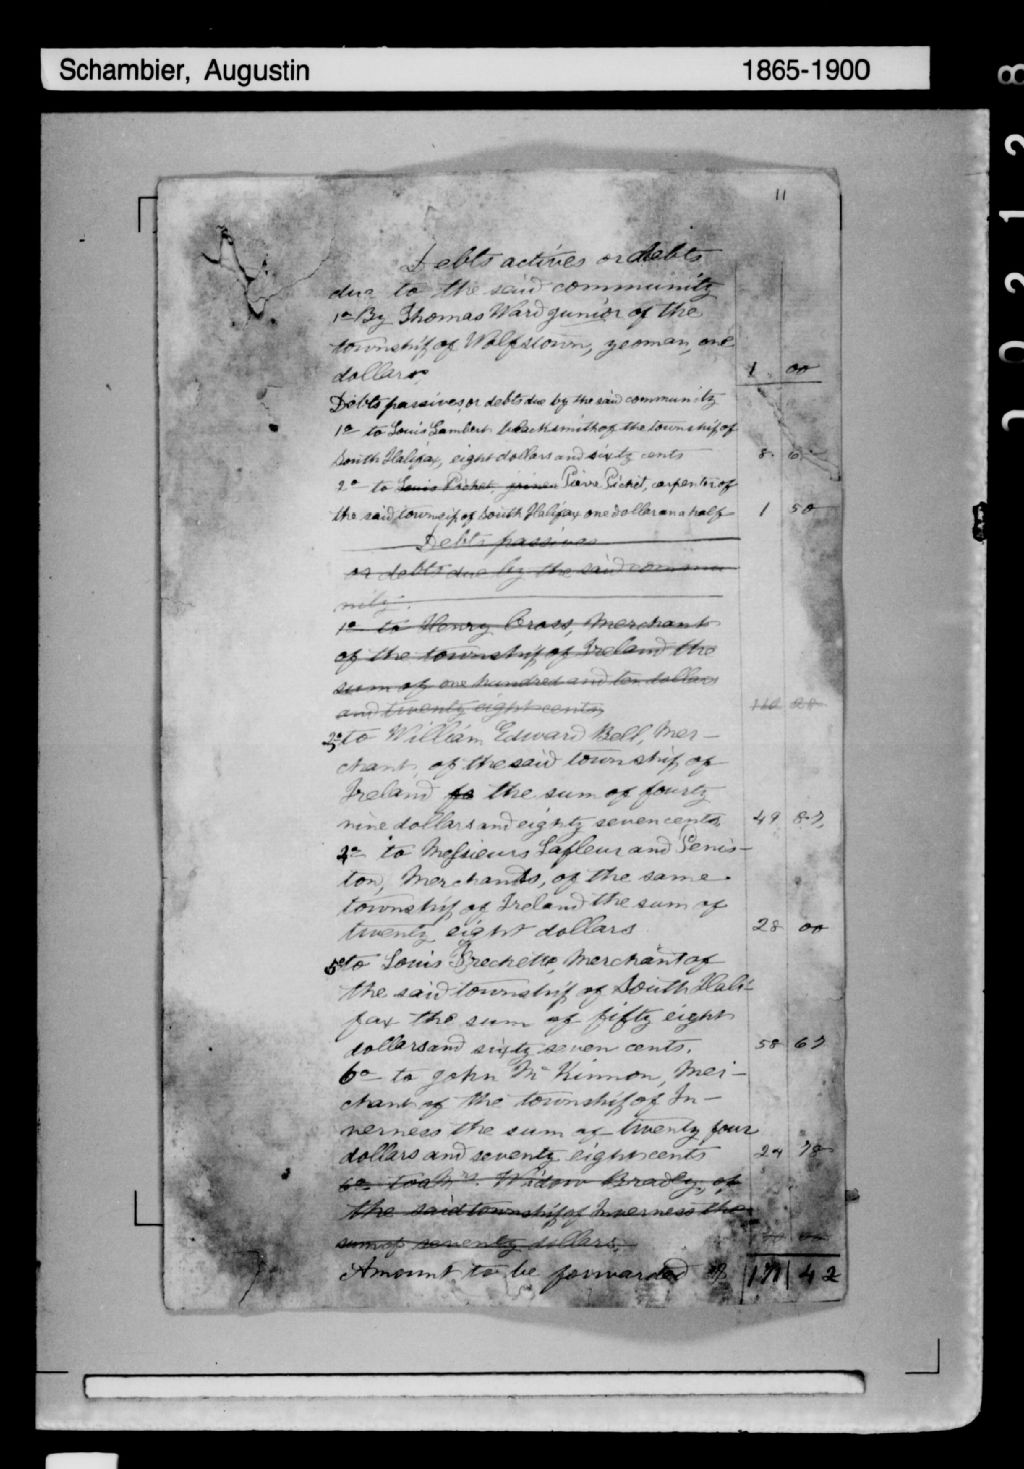 Schambier, Augustin 1865-1900
11
Debts actives or debts
due to the said community
1º By Thomas Ward junior of the
township of Wolfstown, yeoman, one
dollars. 1 00
Debts passives, or debts due by the said community
1º to Louis Lambert blacksmith of the township of
South Halifax, eight dollars and sixty cents 8 6
2º to Louis Pichet, joiner Pierre Pichet, carpenter of
the said townsip of South Halifax one dollar an a half 1 50
Debts passives
or debts due by the said commu
nity.
1º to Henry Cross, Merchant
of the township of Ireland the
sum of one hundred and ten dollars
and twenty eight cents 110 28
to William Edward Bell, Mer-
chant, of the said township of
Ireland fo the sum of fourty
nine dollars and eighty seven cents 49 87
to Messieurs Lafleur and Penis-
ton, Merchands, of the same
township of Ireland the sum of
twenty eight dollars 28 00
5º to Louis Frechette, Merchant of
the said township of South Hali-
fax the sum of fifty eight
dollars and sixty seven cents. 58 67
6º to John Mc Kinnon, Mer-
chant of the township of In-
verness the sum of twenty four
dollars and seventy eight cents 24 78
6º to Widow Bradly, of
the said township of Inverness the
sum of seventy dollars,
Amount to be forwarded 171 42